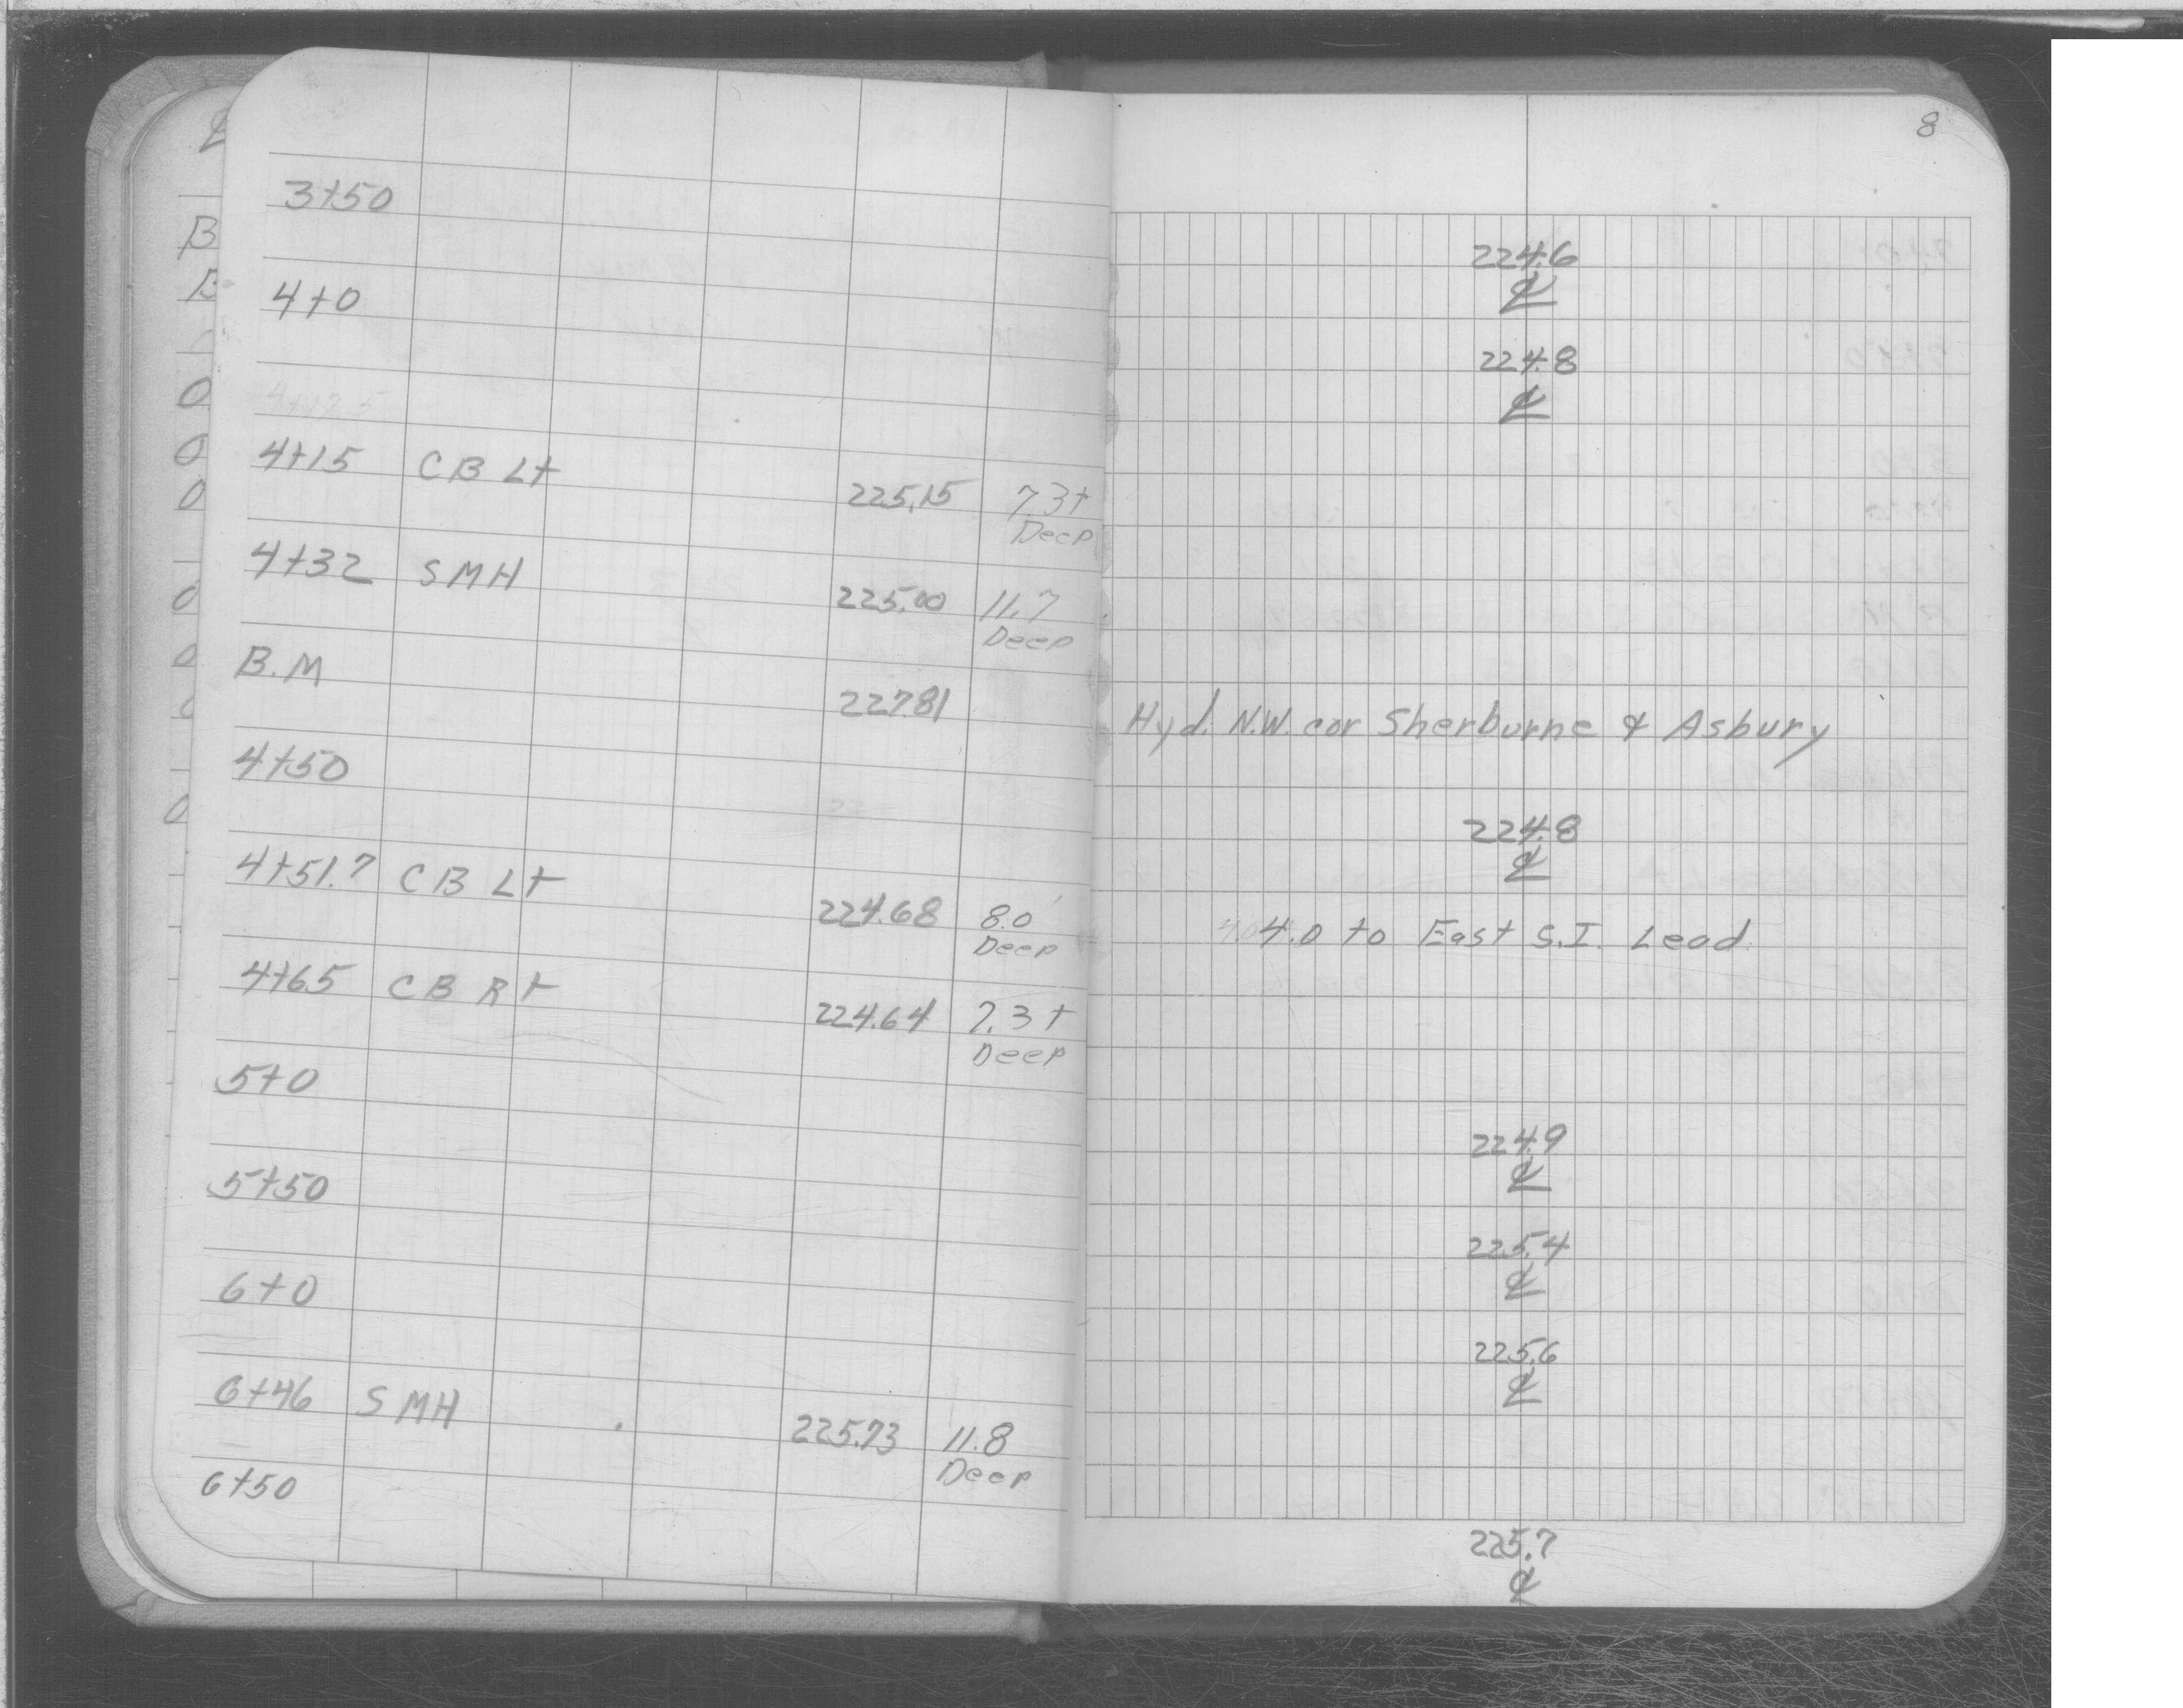 8
3+50
224.6
℄
4+0
224.8
℄
4+12.5
4+15 CB Lt 225.15 7.3+
Deep
4+32 SMH 225.00 11.7
Deep
B.M 227.81 Hyd. N.W. cor Sherburne & Asbury
4+50
224.8
℄
4+51.7 CB Lt 224.68 8.0'
Deep
4.0 to East S.I. Lead
4+65 CB Rt 224.64 7.3+
Deep
5+0
224.9
℄
5+50
225.4
℄
6+0
225.6
℄
6+46 SMH 225.73 11.8
Deep
6+50
225.7
℄